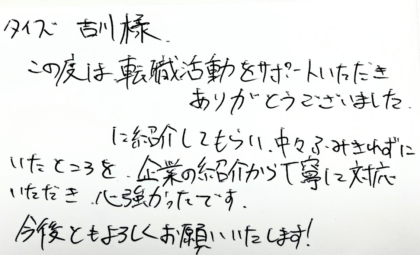 タイズ 吉川様
この度は転職活動をサポートいただき
ありがとうございました.
に紹介してもらい、中々ふみきれずに
いたところを、企業の紹介から丁寧に対応
いただき、心強かったです.
今後ともよろしくお願いいたします!